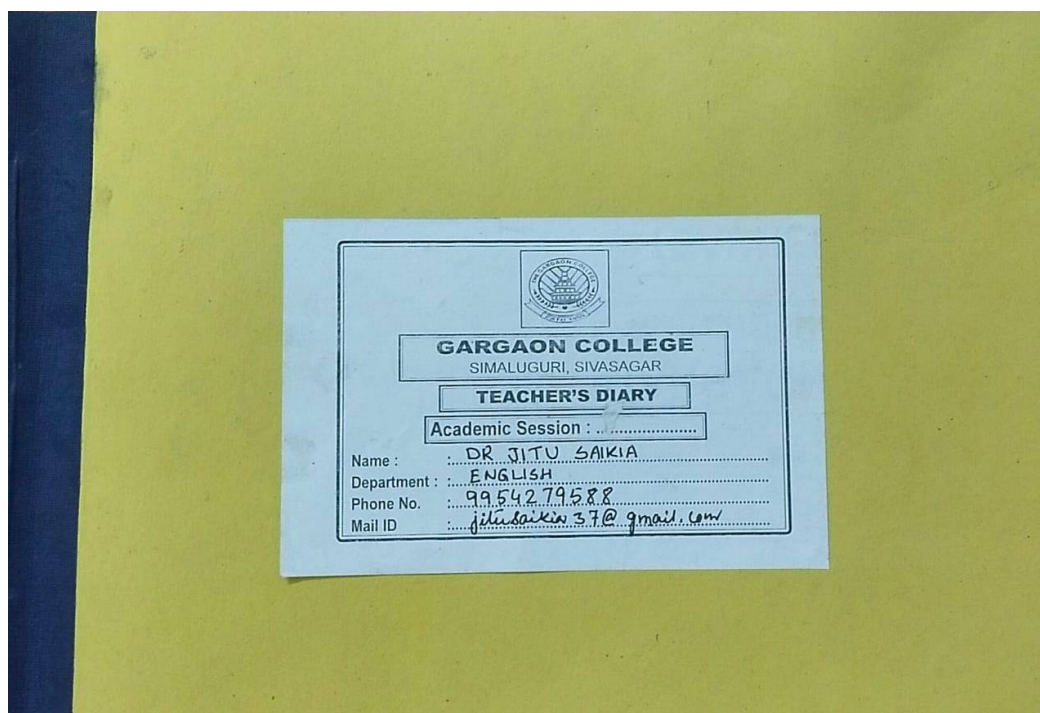 THE GARGAON COLLEGE
GARGAON COLLEGE
SIMALUGURI, SIVASAGAR
TEACHER'S DIARY
Academic Session : ....................
Name : : DR JITU SAIKIA
Department : : ENGLISH
Phone No. : 9954279588
Mail ID : jitusaikia37@gmail.com